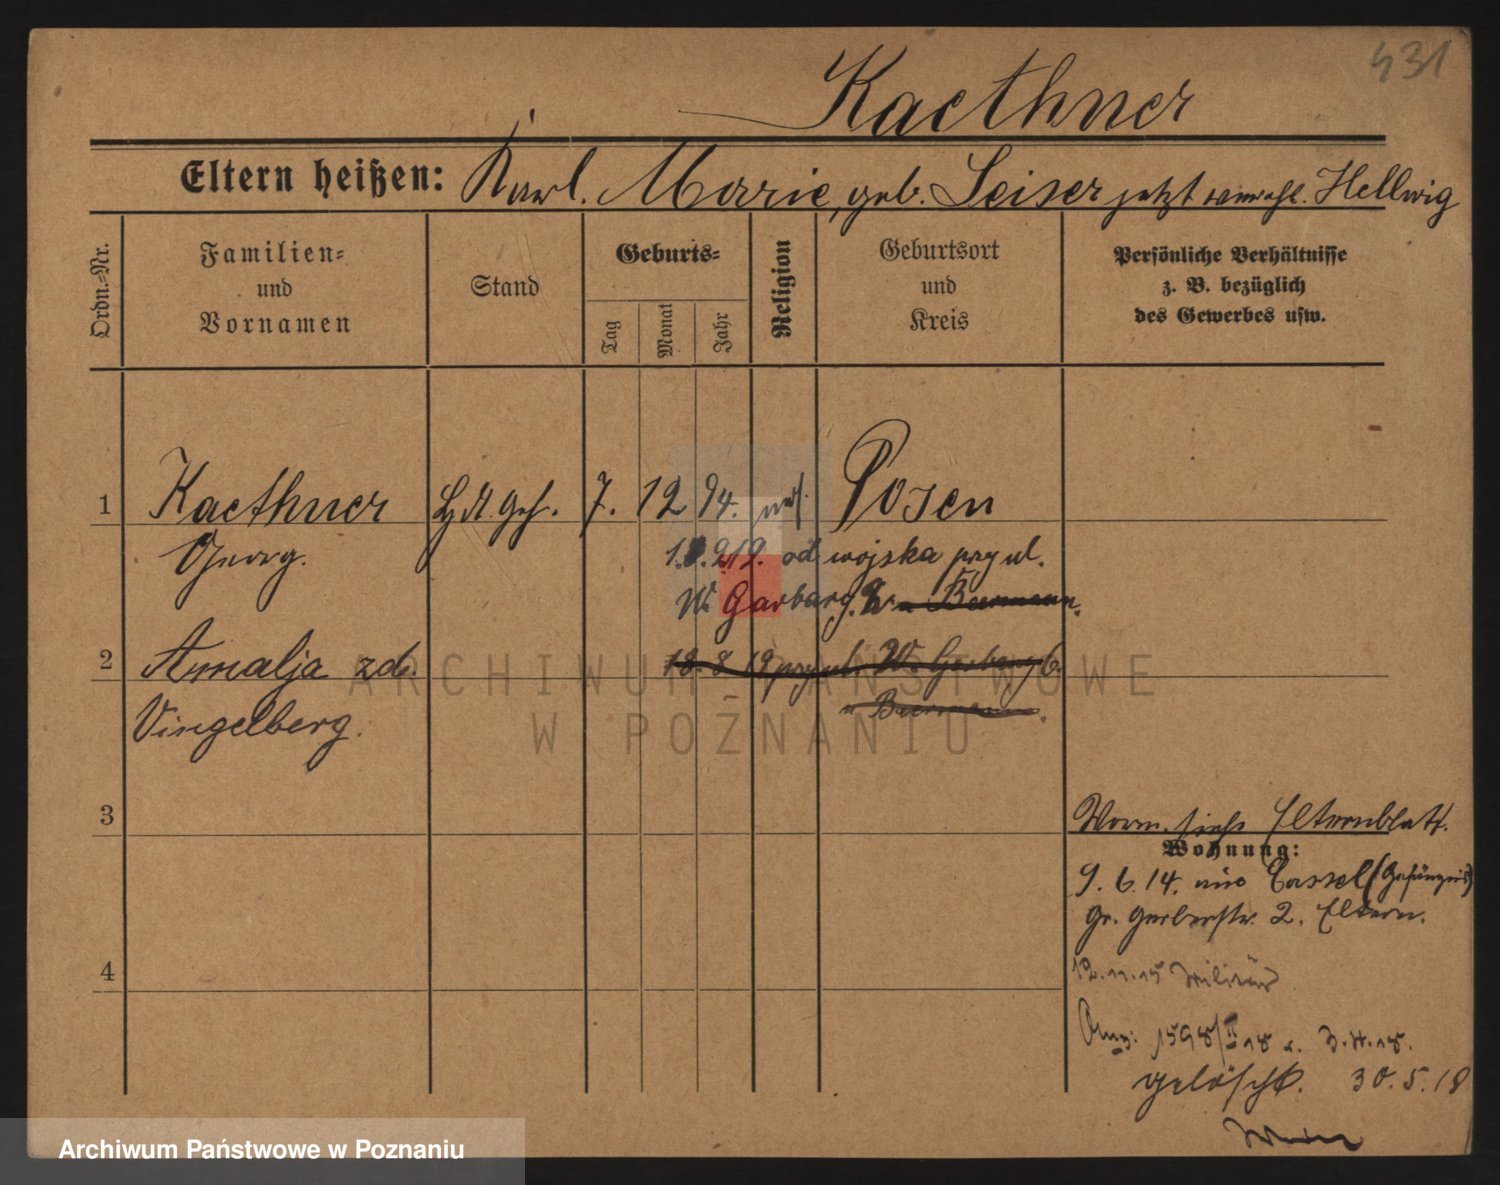 431
Kaethner
Eltern heißen: Karl. Marie, geb. Leiser jetzt verehl. Hellwig
Ordn.-Nr.
Familien-
und
Vornamen
Stand
Geburts-
Tag
Monat
Jahr
Religion
Geburtsort
und
Kreis
Persönliche Verhältnisse
z. B. bezüglich
des Gewerbes usw.
1 Kaethner 7. 12 94. Posen
Georg.
219. od wojska przyul.
W. Garbary.
2 Amalja zd.
Vingelberg.
18. 8 19 przyul. W. Garbary 6.
3
Vorm. siehe Elternblatt.
Wohnung:
9. 6. 14. aus Cassel (Gefängnis)
Gr. Gerberstr. 2. Eltern.
4
12.11.15 Militär
gelöscht. 30.5.18
ARCHIWUM PAŃSTWOWE
W POZNANIU
Archiwum Państwowe w Poznaniu